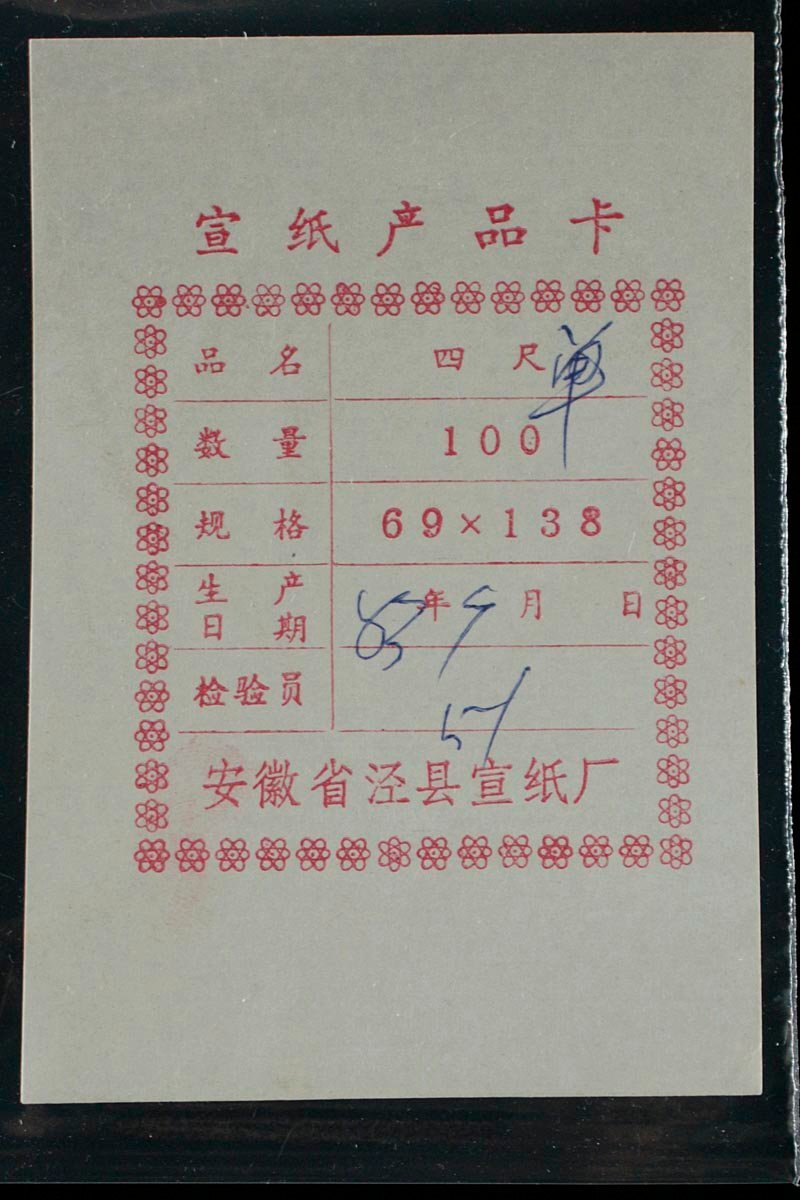 宣纸产品卡
品名 四尺单
数量 100
规格 69×138
生产日期 83年5月 日
检验员 57
安徽省泾县宣纸厂